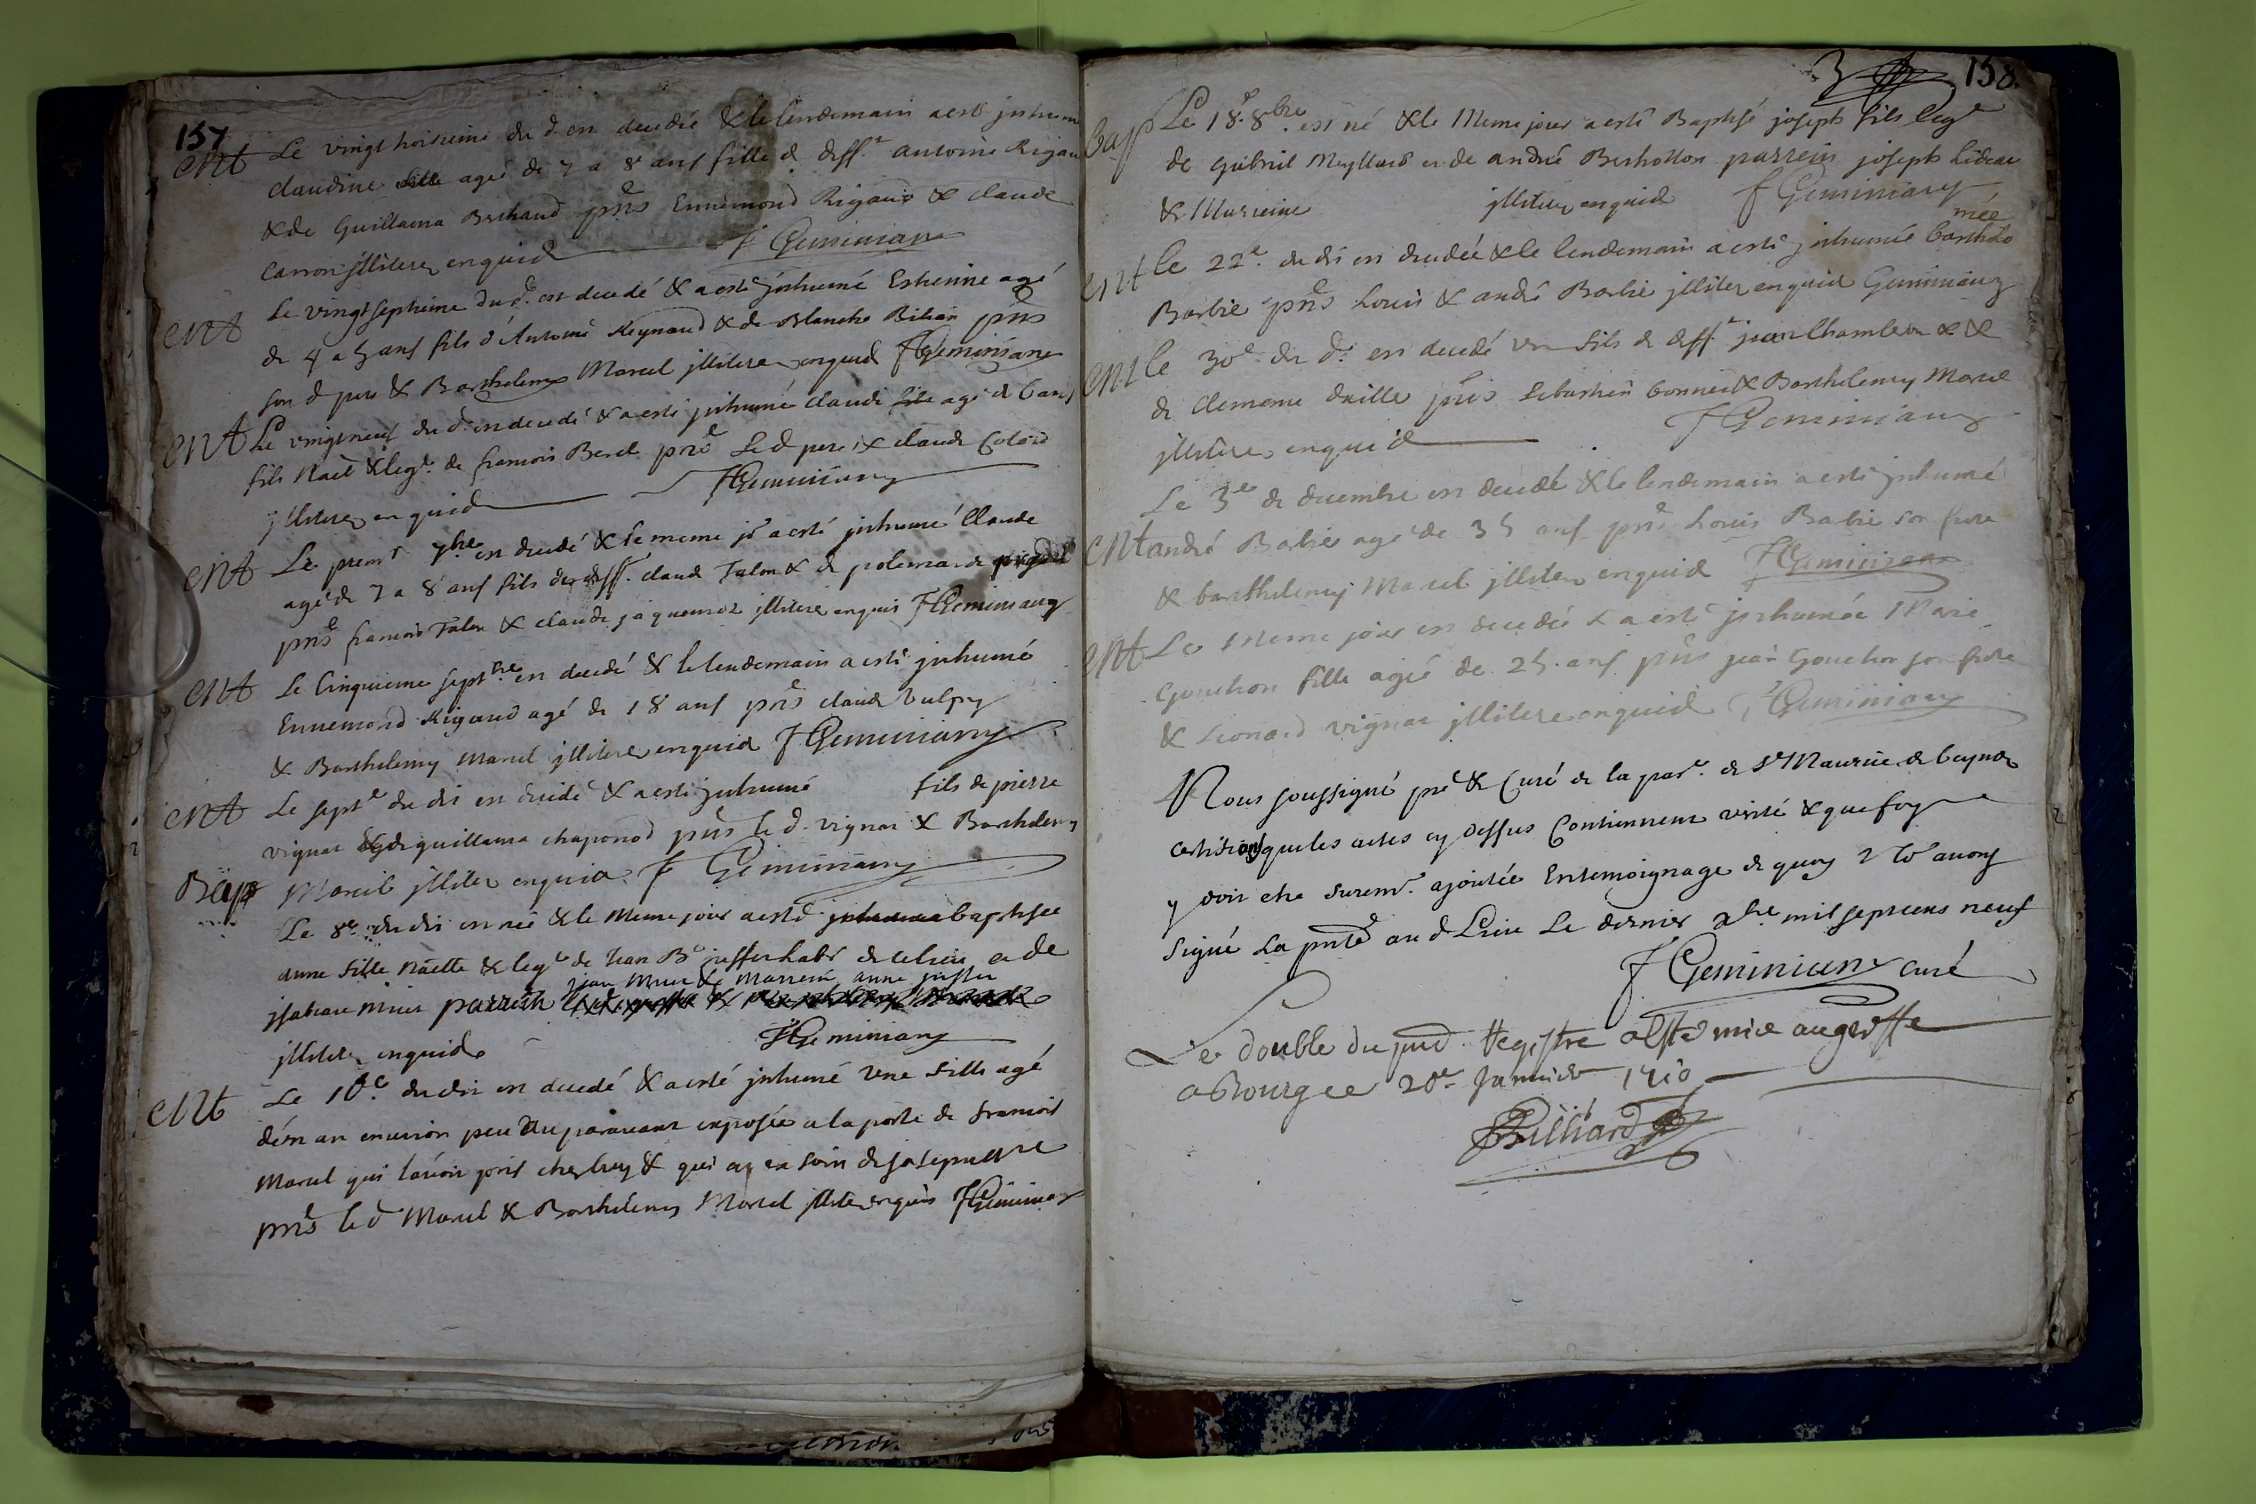 157
ent Le vingt troisieme du d. est decedée & le lendemain a esté jnhumé
claudine agée de 7 a 8 ans fille de deff.t antoine Rigau
& de Guillama Berthaud pnts Ennemond Rigaud & claude
carron jlliterez enquis f Geminiany
ent Le vingt septieme du d. est decedé & a esté jnhumé Estienne agé
de 4 a 5 ans fils d'Antoine Reynaud & de Blanche pnts
son d pere & Barthelemy Marcel jlliterez enquis f Geminiany
ent Le vingt neuf du d. est decedé & a esté jnhumé claude agé de 6 ans
fils nāel & leg.e de francois Berel pnts Le d pere & claude
jlliterez enquis f Geminiany
ent Le prem.r 7bre est decedé & le meme jr a esté jnhumé Claude
agé de 7 a 8 ans fils de deff. claude Talon & de
pnts francois Talon & claude jaquemet jlliterez enquis f Geminiany
ent Le Cinquieme septbre est decedé & le lendemain a esté jnhumé
Ennemond Rigaud agé de 18 ans pnts claude vulpry
& Barthelemy Marcel jlliterez enquis f Geminiany
ent Le sept.e du dit est decedé & a esté jnhumé fils de pierre
vignar & de guillama chaponod pnts le d. vignar & Barthelemy
Marcel jlliterez enquis f Geminiany
Bap Le 8e du dit est née & le meme jour a esté baptisée
anne fille näelle & leg.e de Jean B. juffer habt de et de
jean Miner & Marreine anne juffer
jsabeau Miner parrein
jlliterez enquis f Geminiany
ent Le 16.e du dit est decedé & a esté jnhumé Une fille agé
d'un an environ peu auparavant exposée a la porte de francois
Marcel qui l'avoit pris chez luy & qui a eu soin de sa sepulture
pnts le d Marcel & Barthelemy Marcel jlliterez enquis f Geminiany
3 158.
Bap Le 18.e 8bre est né & le Meme jour a esté Baptisé joseph fils leg.e
de gabriel Meyllard et de andrée Berthollon parrein joseph
& Marreine jlliterez enquis f Geminiany
mée
ent le 22.e du dit est decedée & le lendemain a esté jnhumée bartholo
Barbie pnts Louis & andré Barbie jlliterez enquis Geminiany
ent le 30e du d. est decedé un fils de deff.t jean Chambeu &
de Clemence pnts sebastien bonnet & Barthelemy Marcel
jlliterez enquis f Geminiany
Le 3.e de decembre est decedé & le lendemain a esté jnhumé
ent andré Barbie agé de 35 ans pnts Louis Barbie son frere
& barthelemy Marcel jlliterez enquis f Geminiany
ent Le Meme jour est decedée & a esté jnhumée Marie
Gonchon fille agée de 25. ans pnts jean Gonchon son frere
& Leonard vignar jlliterez enquis f Geminiany
Nous soussigné pre & Curé de la par.e de St Maurice de beynos
certifions que les actes cy dessus Contiennent verité & que foy
y doit etre surem.t ajoutée En temoignage de quoy nous avons
signé La pnte au d Lieu Le dernier xbre mil sept cens neuf
f Geminiany curé
Le double du pnt Registre a esté mis au greffe
a Bourg ce 20e Janvier 1710
Billiard